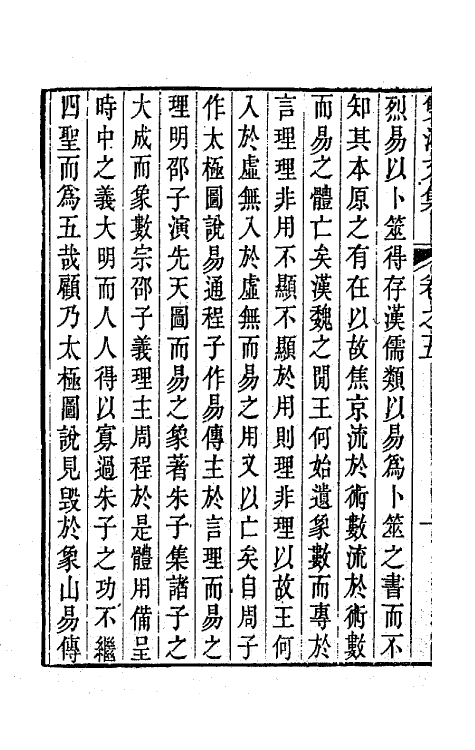 文集
卷之五
烈易以卜筮得存漢儒類以易爲卜筮之書而不
知其本原之有在以故焦京流於術數流於術數
而易之體亡矣漢魏之閒王何始遺象數而專於
言理理非用不顯不顯於用則理非理以故王何
入於虛無入於虛無而易之用又以亡矣自周子
作太極圖說易通程子作易傳主於言理而易之
理明邵子演先天圖而易之象著朱子集諸子之
大成而象數宗邵子義理主周程於是體用備呈
時中之義大明而人人得以寡過朱子之功不繼
四聖而爲五哉顧乃太極圖說見毀於象山易傳